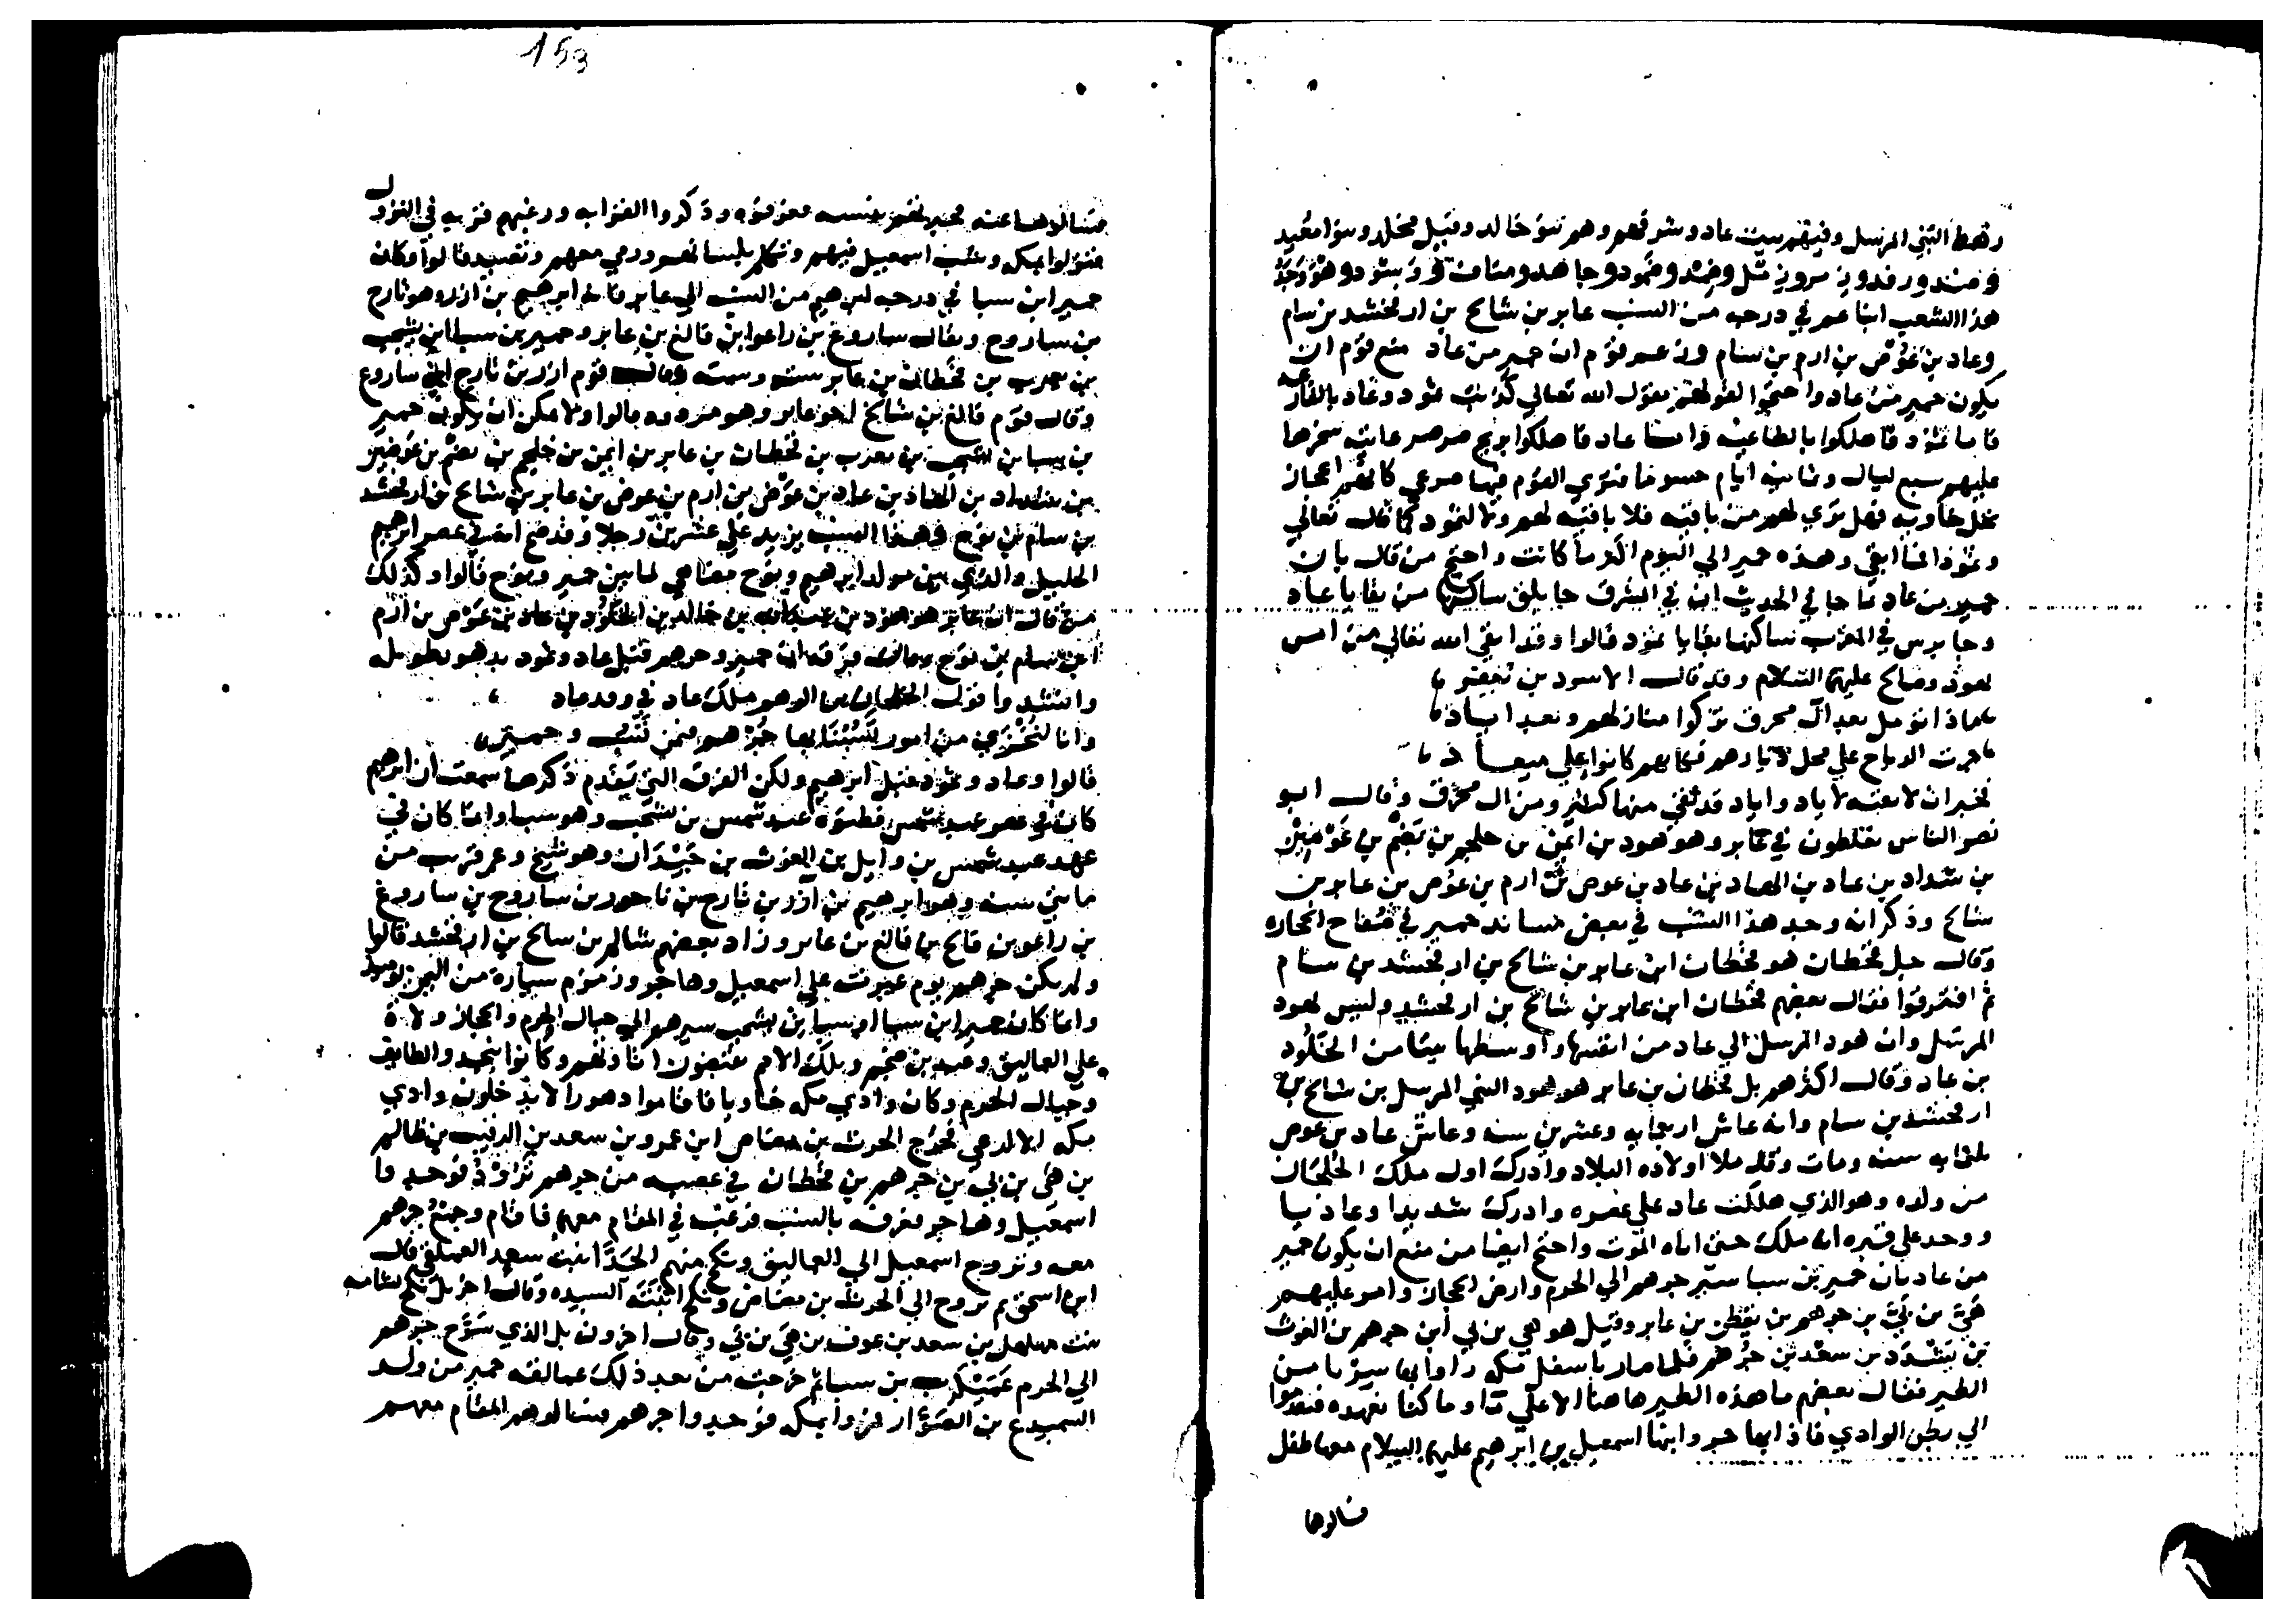 رهط النبي المرسل وفيهم بيت عاد وشرفهم وهم بنو خالد وقيل مخلد وبنوا معبد
هذا الشعب ابنا عم في درجه من النسب عابر بن شالخ بن ارفخشد بن سام
وعاد بن عوص بن ارم بن سام وزعم قوم ان حمير من عاد منع قوم ان
يكون حمير من عاد واحتجوا لقولهم بقول الله تعالى كذبت ثمود وعاد بالقارعه
فاما ثمود فاهلكوا بالطاغيه واما عاد فاهلكوا بريح صرصر عاتيه سخرها
عليهم سبع ليال وثمانيه ايام حسوما فترى القوم فيها صرعى كانهم اعجاز
نخل خاويه فهل ترى لهم من باقيه فلا باقيه لهم ولا لثمود كما قال تعالى
وثمود فما ابقى وهذه حمير الى اليوم اكثر ما كانت واحتج من قال بان
حمير من عاد بما جا في الحديث ان في المشرق جابلق ساكنها من بقايا عاد
وجابرس في المغرب ساكنها بقايا ثمود قالوا وقد ابقى الله تعالى من امن
بهود وصالح عليهما السلام وقد قال الاسود بن يعفر
ماذا اؤمل بعد ال محرق تركوا منازلهم وبعد اياد
جرت الرياح على محل ديارهم فكانهم كانوا على ميعاد
فخبر ان لا بقيه لاياد واياد قد بقي منها كثير ومن ال محرق وقال ابو
نصر الناس يغلطون في عابر وهو هود بن ايمن بن حلجم بن بضم بن عوضين
بن شداد بن عاد بن الهاد بن عاد بن عوص بن ارم بن عوص بن عابر بن
شالخ وذكر انه وجد هذا النسب في بعض مساند حمير في صفاح الحجاره
وقال جل قحطان هو قحطان ابن عابر بن شالخ بن ارفخشد بن سام
ثم افترقوا فقال بعضهم قحطان ابن عابر بن شالخ بن ارفخشد وليس بهود
المرسل وان هود المرسل الى عاد من انفسها واوسطها بيتا من الخلود
بن عاد وقال اكثرهم بل قحطان بن عابر هو هود النبي المرسل بن شالخ بن
ارفخشد بن سام وانه عاش اربعمايه وعشرين سنه وعاش عاد بن عوص
ثلثمايه سنه ومات وقد ملا اولاده البلاد وادرك اول ملك الخلجان
من ولده وهو الذي هلكت عاد على عصره وادرك شديدا وعاديا
ووجد على قبره انه ملك حتى اتاه الموت واحتج ايضا من منع ان يكون حمير
من عاد بان حمير بن سبا سير جرهم الى الحرم وارض الحجاز وامر عليهم
هي بن بي بن جرهم بن يقطن بن عابر وقيل هو هي بن بي ابن جرهم بن الغوث
بن يشدد بن سعد بن جرهم فلما صاروا باسفل مكه راوا بها سربا من
الطير فقال بعضهم ما هذه الطير هاهنا الا على ما وما كنا نعهده فتقدموا
الى بطن الوادي فاذا بهاجر وابنها اسمعيل بن ابرهيم عليهما السلام معها طفل
فسالوها
153
فسالوها عنه فخبرتهم بنسبه فعرفوه وذكروا القرابه ورغبهم قربه في النزول
فنزلوا بمكه ونشا اسمعيل فيهم وتكلم بلسانهم ورمى معهم وتصيد قالوا وكان
حمير ابن سبا في درجه ابرهيم من النسب الى عابر فانه ابرهيم بن ازر وهو تارح
بن ساروح ويقال ساروغ بن راعوا بن فالغ بن عابر وحمير بن سبا ابن يشجب
بن يعرب بن قحطان بن عابر وقال قوم ازر بن تارح ابن ساروع
وقال قوم فالغ بن شالخ اخو عابر قالوا ولا يمكن ان يكون حمير
بن سبا بن يشجب بن يعرب بن قحطان بن عابر بن ايمن بن خليجم بن بضم بن عوضين
بن شداد بن الهاد بن عاد بن عوص بن ارم بن عوص بن عابر بن شالخ بن ارفخشد
بن سام بن نوح وهذا النسب يزيد على عشرين رجلا وقد صح انه في عصر ابرهيم
الخليل والذي بين مولد ابرهيم ونوح مضاهي لما بين حمير ونوح قالوا وكذلك
من قال ان عابر هو هود بن عبد الله بن خالد بن الخلود بن عاد بن عوص بن ارم
ابن سام بن نوح وقالت فرقه ان حمير وجرهم قبل عاد وثمود بدهور طويله
وانشدوا قول الخلجان بن الوهم ملك عاد في وفد عاد
قالوا وعاد وثمود قبل ابرهيم ولكن الفرقه التي تقدم ذكرها سمعت ان ابرهيم
كان في عصر عبد شمس فظنوه عبد شمس بن يشجب وهو سبا وانما كان في
عهد عبد شمس بن وايل بن الغوث بن حيدان وهو شيخ وعمر قريب من
مايتي سنه وهو ابرهيم بن ازر بن تارح بن ناحور بن ساروح بن ساروغ
بن راعو بن فالح بن فالغ بن عابر وزاد بعضهم شالم بن شالخ بن ارفخشد قالوا
ولم يكن جرهم يوم عبرت على اسمعيل وهاجر وزمزم سياره من اليمن
وانما كان حمير ابن سبا او سبا بن يشجب سيرهم الى جبال الحرم والحجاز ولاة
على العماليق وعبد بن ضخم وتلك الامم يقبضون اتاوتهم وكانوا بنجد والطايف
وجبال الحرم وكان وادي مكه خاويا فاقاموا دهورا لا يدخلون وادي
مكه الا لرعي فخرج الحرث بن مضاض ابن عمرو بن سعد بن الرقيب بن ظالم
بن هي بن بي بن جرهم بن قحطان في عصبه من جرهم فوجدوا
اسمعيل وهاجر فعرفته بالنسب فرغب في المقام معهم فاقام وجمع جرهم
معه وتزوج اسمعيل الى العماليق ونكح منهم الجدا ابنت سعد العملقي قال
ابن اسحق ثم تزوج الى الحرث بن مضاض ونكح ابنته السيده وقال اخر بل نكح سامه
بنت مهلهل بن سعد بن عوف بن هي بن بي وقال اخرون بل الذي سرح جرهم
الى الحرم بن سبا ثم خرجت من بعد ذلك عمالقه حمير من ولد
السميدع بن الصوار فنزلوا بمكه فوجدوا جرهم فسالوهم المقام معهم